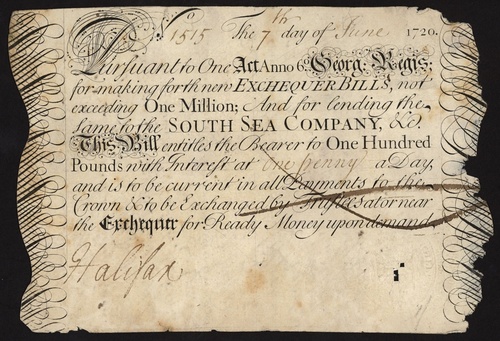 No 1515 The 7th day of June 1720.
Pursuant to One Act Anno 6o Georg. Regis;
for making forth new EXCHEQUER BILLS, not
exceeding One Million; And for lending the
same to the SOUTH SEA COMPANY, &c.
This Bill entitles the Bearer to One Hundred
Pounds with Interest at One penny a Day,
and is to be current in all Payments to the
Crown & to be Exchanged by Trustees at or near
the Exchequer for Ready Money upon demand
Halifax